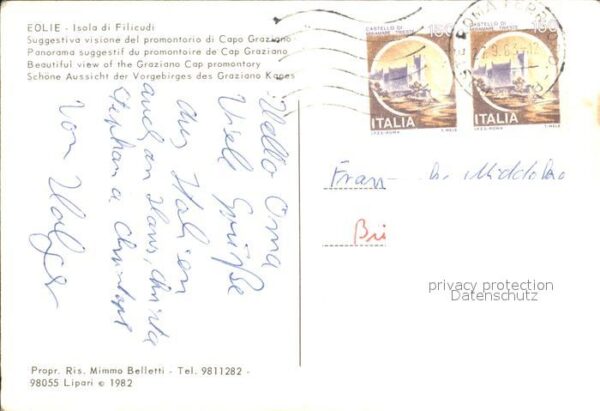 EOLIE - Isola di Filicudi
Suggestiva visione del promontorio di Capo Graziano
Panorama suggestif du promontoire de Cap Graziano
Beautiful view of the Graziano Cap promontory
Schöne Aussicht der Vorgebirges des Graziano Kapes
CASTELLO DI
MIRAMARE TRIESTE
ITALIA
I.P.Z.S. ROMA
T. MELE
CASTELLO DI
MIRAMARE TRIESTE
ITALIA
I.P.Z.S. ROMA
T. MELE
Hello Oma
Viele Grüße
aus Italien
auch an Hans, Christa
Stephan u. Christoph
von Holger
Frau
Bri
privacy protection
Datenschutz
Propr. Ris. Mimmo Belletti - Tel. 9811282 -
98055 Lipari © 1982